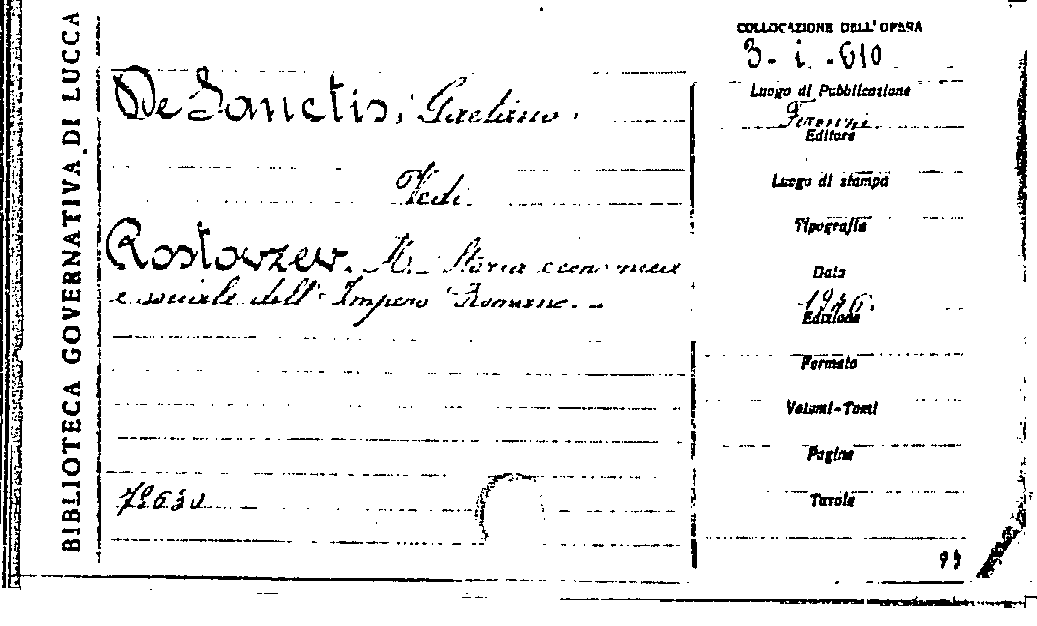 BIBLIOTECA GOVERNATIVA DI LUCCA
De Sanctis, Gaetano.
Vedi
Rostovzev. M. Storia economica
e sociale dell'Impero Romano. -
COLLOCAZIONE DELL'OPERA
3. i. 610
Luogo di Pubblicazione
Firenze
Editore
Luogo di stampa
Tipografia
Data
1936.
Edizione
Formato
Volumi-Tomi
Pagine
Tavole